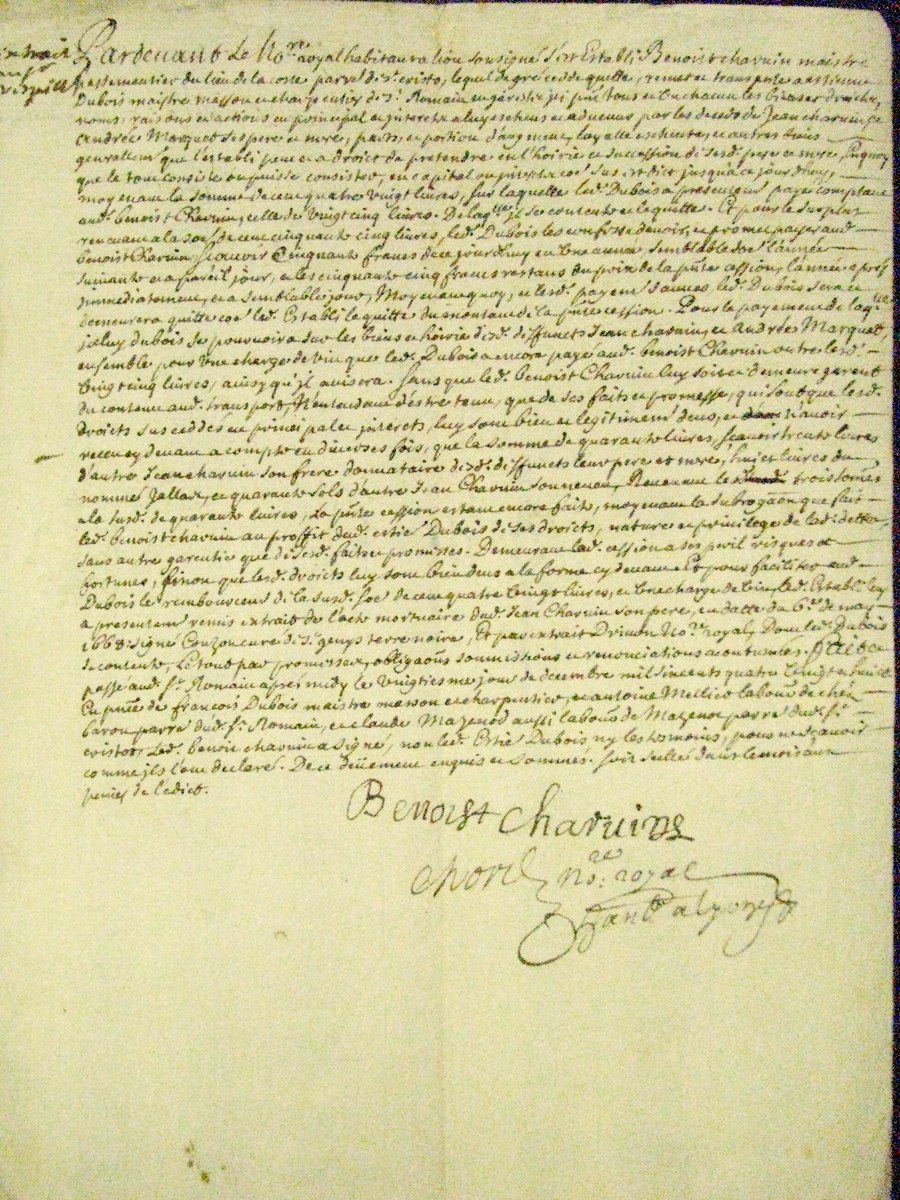 Pardevant Le No.re royal habitant a lion soubsigné s'est Establi Benoist charuin maistre
passementier du lieu de la coste parr.e de s.t cristo, lequel de gré cedde quitte, remet et transporte a estienne
Dubois maistre masson et charpentier de s.t Romain en garestz ici p.nt tous et un chacun les biens et droicts,
noms, raisons et actions en principal et interetz a luy escheus et advenus par les deceds de Jean charuin et
andrée Marquet ses pere et mere, parts, et portion d'augment, loyalle escheute, et autres biens
generallem.t que l'establi peut et a droict de pretendre en l'hoirie et succession de sesd. pere et mere, En quoy
que le tout consiste ou puisse consister, en capital ou interetz co.e sus est dict jusqu'a ce jourd'huy,
moyenant la somme de cent quatre vingt livres, sur laquelle led. Dubois a presentem.t payé comptant
aud. benoist Charuin, celle de vingt cinq livres. De laq.lle il se contente et le quitte. Et pour le surplus
revenant a la so.e de cent cinquante cinq livres, led. Dubois les confesse devoir, et promet payer aud.
benoist Charuin, scavoir Cinquante francs de ce jourdhuy en une année semblable de l'année
suivante et a pareil jour, et les cinquante cinq francs restans du prix de la p.nte cession, l'année apres
immediatement, et a semblable jour, Moyenant quoy, et lesd. payem.t d'annes led. Dubois sera et
demeurera quitte co.e led. Establi le quitte du montant de la p.nte cession. Pour le payement de laq.lle
icelluy dubois se pourvoira sur les biens et hoirie desd. deffuncts Jean charuin, et Andrée Marquet,
ensemble pour une charge de vin que led. Dubois a encore payé aud. benoist Charuin outre lesd.
vingt cinq livres, ainsy qu'il avisera. Sans que led. benoist Charuin luy soit et demeure garent
du contenu aud. transport, N'entendant d'estre tenu, que de ses faits et promesse, qui sont que lesd.
droicts sus ceddés en principal et interets, luy sont bien et legitimem.t deus, et n'avoir
receu cy devant a compte en diverses fois, que la somme de quarante livres, scavoir trente livres
d'autre Jean charuin son frere donnataire desd. deffuncts leur pere et mere, huict livres du
nommé Jallax, et quarante sols d'autre Jean Charuin son neveu, Revenant les trois sommes
a la susd. de quarante livres, La p.nte cession estant encore faite, moyenant la subrogaon que fait
led. benoist charuin au proffit dud. estie Dubois de ses droicts, nature et privilege de lad. dette
sans autre garentie que de sesd. faits et promesses. Demeurant lad. cession a ses peril risques et
fortunes, sinon que lesd. droicts luy sont bien deus a la forme cy devant Et pour faciliter aud.
Dubois le remboursem.t de la susd. so.e de cent quatre vingt livres, et une charge de vin, led. Establi luy
a presentem.t remis extrait de l'acte mortuaire dud. Jean Charuin son pere, en datte du 6.e de may
1668 signé Couzon curé de s.t genys terre noire, Et par extrait Drimon No.re royal, Dont led. Dubois
se contente, Le tout par promesses, obligaons soumissions et renonciations acoutumes. Faict et
passé aud. s.t Romain aprés midy le vingtiesme jour de decembre mil six cents quatre vingts huict
En p.nce de francois Dubois maistre masson et charpentier, et antoine Mellier labour de chez
baron parr.e dud. s.t Romain, et claude Mazenod aussi labour de Mazenod parr.e dud. s.t
cristot, Led. benoit charuin a signé, non led. Estie Dubois ny les tesmoins, pour ne scavoir
comme ils l'ont declaré. De ce deüement enquis et sommés. soit scellé dans le mois aux
peines de l'edict.
Benoist charuins
chorel
no.re royal